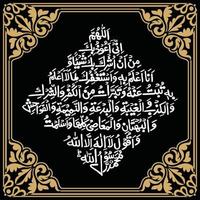 اَللّٰهُمَّ
اِنِّیْ اَعُوْذُ بِكَ
مِنْ اَنْ اُشْرِكَ بِكَ شَیْئًا وَّ
اَنَا اَعْلَمُ بِهٖ وَاَسْتَغْفِرُكَ لِمَا لَا اَعْلَمُ
بِهٖ تُبْتُ عَنْهُ وَتَبَرَّأْتُ مِنَ الْكُفْرِ وَالشِّرْكِ
وَالْكِذْبِ وَالْغِیْبَةِ وَالْبِدْعَةِ وَالنَّمِیْمَةِ وَالْفَوَاحِشِ
وَالْبُهْتَانِ وَالْمَعَاصِیْ كُلِّهَا وَاَسْلَمْتُ
وَاَقُوْلُ لَا اِلٰهَ اِلَّا اللّٰهُ
مُحَمَّدٌ رَّسُوْلُ اللّٰهِ